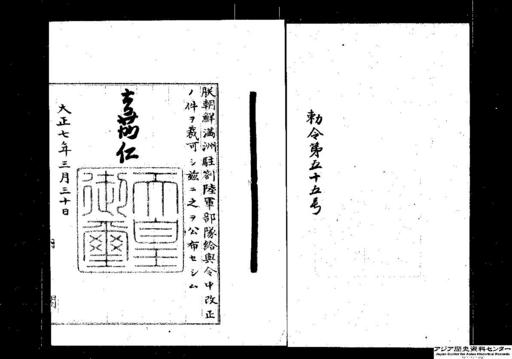 勅令第五十五号
朕朝鮮満洲駐劄陸軍部隊給与令中改正
ノ件ヲ裁可シ茲ニ之ヲ公布セシム
嘉仁
天皇
御璽
大正七年三月三十日
アジア歴史資料センター
Japan Center for Asian Historical Records